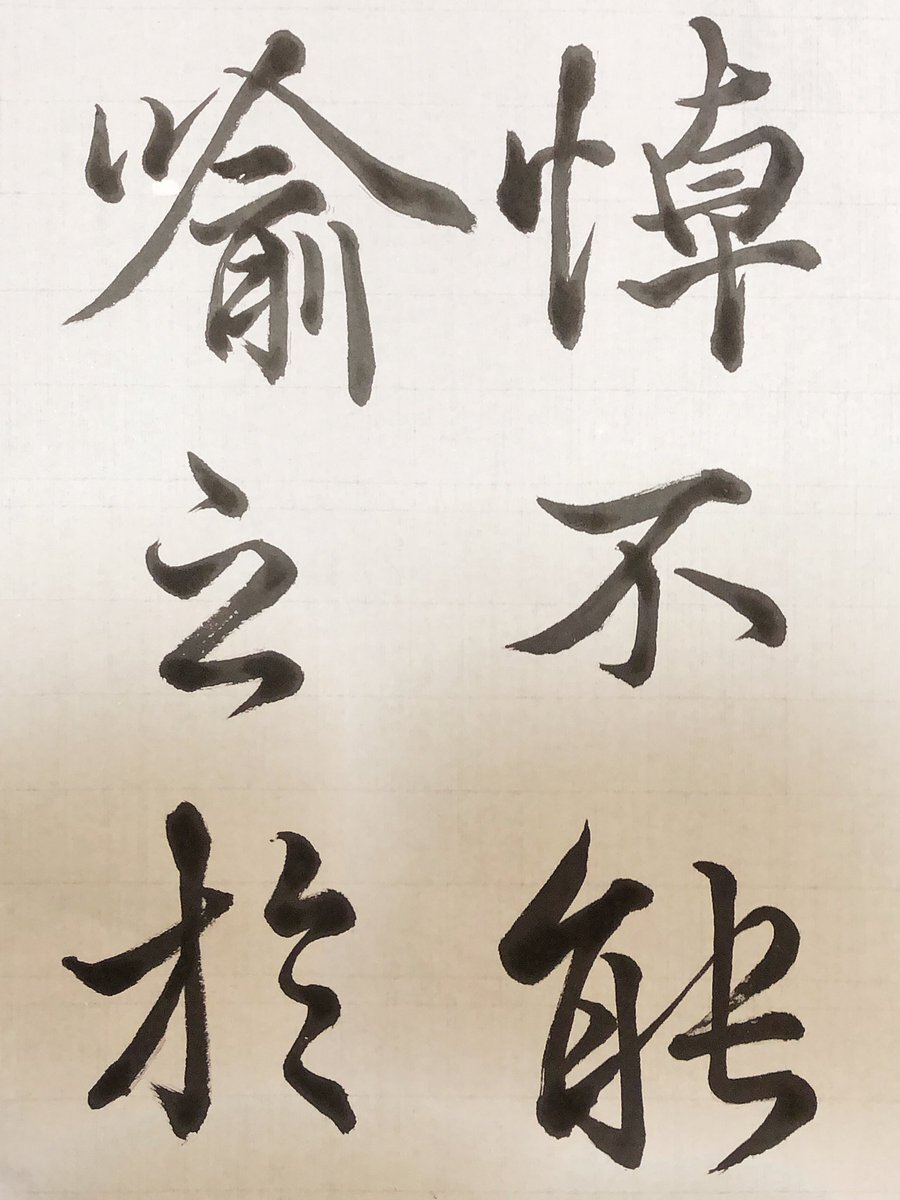 悼不能
喻之於